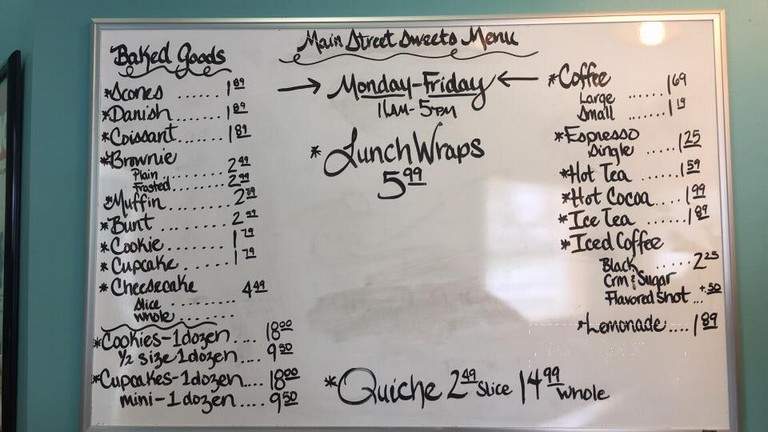 Main Street Sweets Menu
Baked Goods
*Scones ...... 1 89
*Danish ...... 1 89
*Coissant ...... 1 89
*Brownie
Plain ........ 2 49
Frosted ........ 2 99
*Muffin ....... 2 39
*Bunt ....... 2 99
*Cookie ....... 1 79
*Cupcake ....... 1 79
*Cheesecake 4 49
Slice .........
Whole .......
*Cookies-1dozen .... 18 00
1/2 size 1dozen .... 9 50
*Cupcakes-1dozen .... 18 00
mini-1dozen .... 9 50
→ Monday-Friday ←
11AM-5PM
*Lunch Wraps
5 99
*Coffee
Large ...... 1 69
Small ...... 1 19
*Espresso
Single ..... 1 25
*Hot Tea ..... 1 59
*Hot Cocoa .... 1 99
*Ice Tea ...... 1 89
*Iced Coffee
Black ..... 2 25
Crm & Sugar
Flavored Shot ... +.50
*Lemonade .... 1 89
*Quiche 2 49 Slice 14 99 Whole